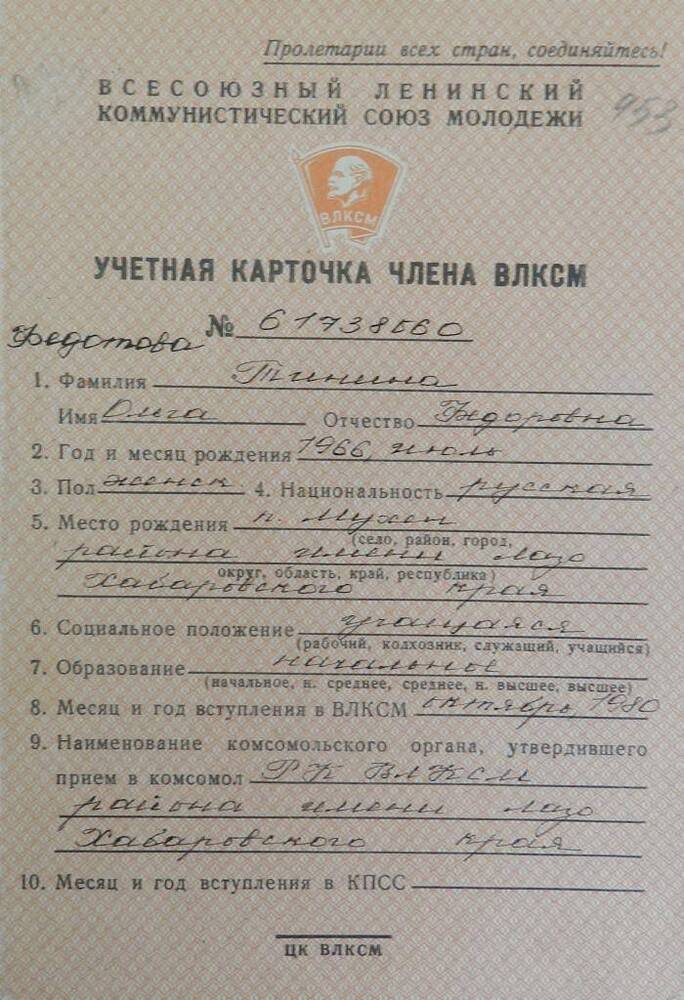 Пролетарии всех стран, соединяйтесь!
ВСЕСОЮЗНЫЙ ЛЕНИНСКИЙ
КОММУНИСТИЧЕСКИЙ СОЮЗ МОЛОДЕЖИ
953
ВЛКСМ
УЧЕТНАЯ КАРТОЧКА ЧЛЕНА ВЛКСМ
№ 61738560
Федотова
1. Фамилия Тинина
Имя Ольга Отчество Федоровна
2. Год и месяц рождения 1966, июль
3. Пол женск. 4. Национальность русская
5. Место рождения п. Мухен
(село, район, город,
района имени Лазо
округ, область, край, республика)
Хабаровского края
6. Социальное положение учащаяся
(рабочий, колхозник, служащий, учащийся)
7. Образование начальное
(начальное, н. среднее, среднее, н. высшее, высшее)
8. Месяц и год вступления в ВЛКСМ октябрь, 1980
9. Наименование комсомольского органа, утвердившего
прием в комсомол РК ВЛКСМ
района имени Лазо
Хабаровского края
10. Месяц и год вступления в КПСС
ЦК ВЛКСМ